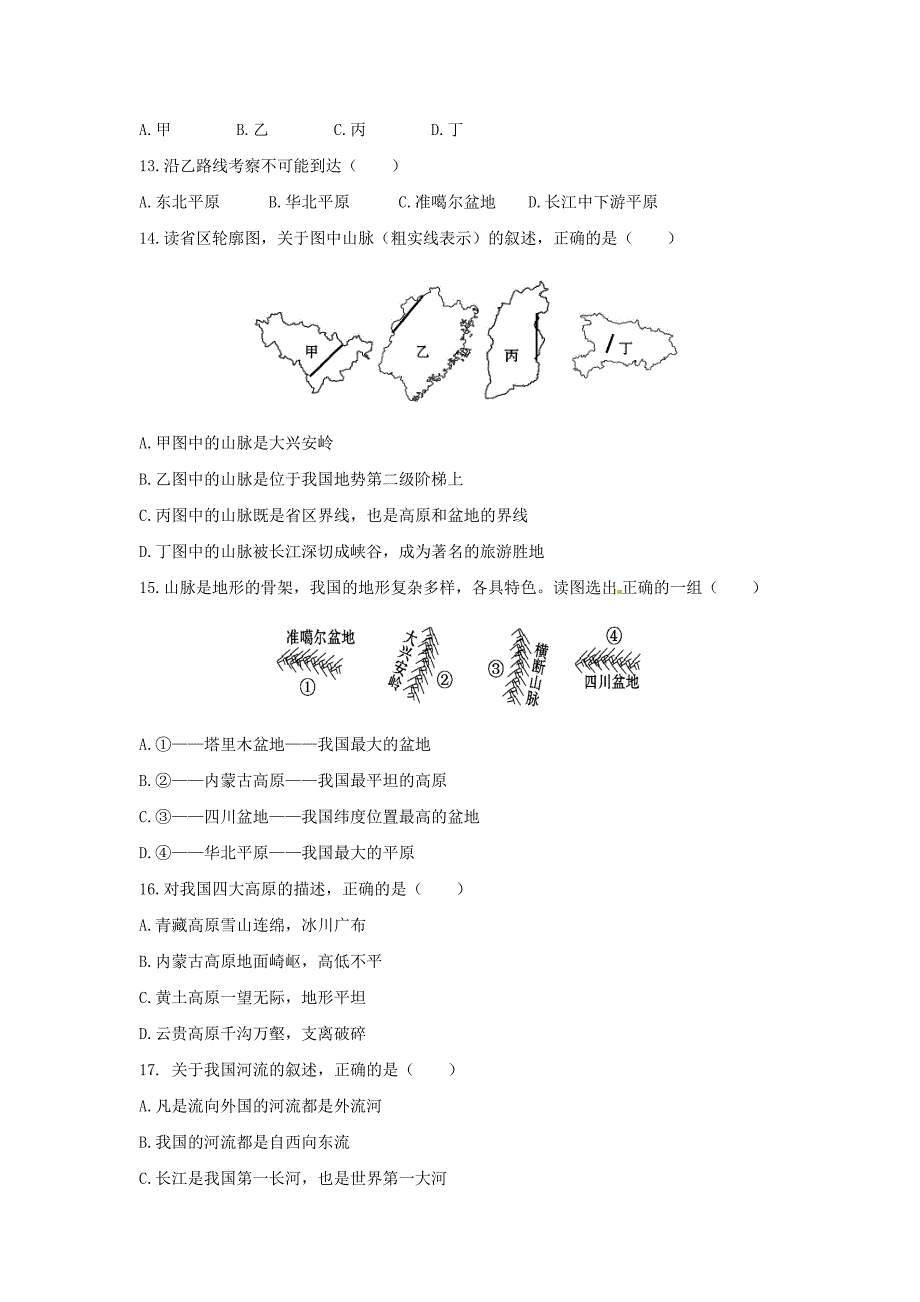 A.甲 B.乙 C.丙 D.丁
13.沿乙路线考察不可能到达（ ）
A.东北平原 B.华北平原 C.准噶尔盆地 D.长江中下游平原
14.读省区轮廓图，关于图中山脉（粗实线表示）的叙述，正确的是（ ）
甲 乙 丙 丁
A.甲图中的山脉是大兴安岭
B.乙图中的山脉是位于我国地势第二级阶梯上
C.丙图中的山脉既是省区界线，也是高原和盆地的界线
D.丁图中的山脉被长江深切成峡谷，成为著名的旅游胜地
15.山脉是地形的骨架，我国的地形复杂多样，各具特色。读图选出正确的一组（ ）
准噶尔盆地
①
大兴安岭
②
③
横断山脉
④
四川盆地
A.①——塔里木盆地——我国最大的盆地
B.②——内蒙古高原——我国最平坦的高原
C.③——四川盆地——我国纬度位置最高的盆地
D.④——华北平原——我国最大的平原
16.对我国四大高原的描述，正确的是（ ）
A.青藏高原雪山连绵，冰川广布
B.内蒙古高原地面崎岖，高低不平
C.黄土高原一望无际，地形平坦
D.云贵高原千沟万壑，支离破碎
17. 关于我国河流的叙述，正确的是（ ）
A.凡是流向外国的河流都是外流河
B.我国的河流都是自西向东流
C.长江是我国第一长河，也是世界第一大河